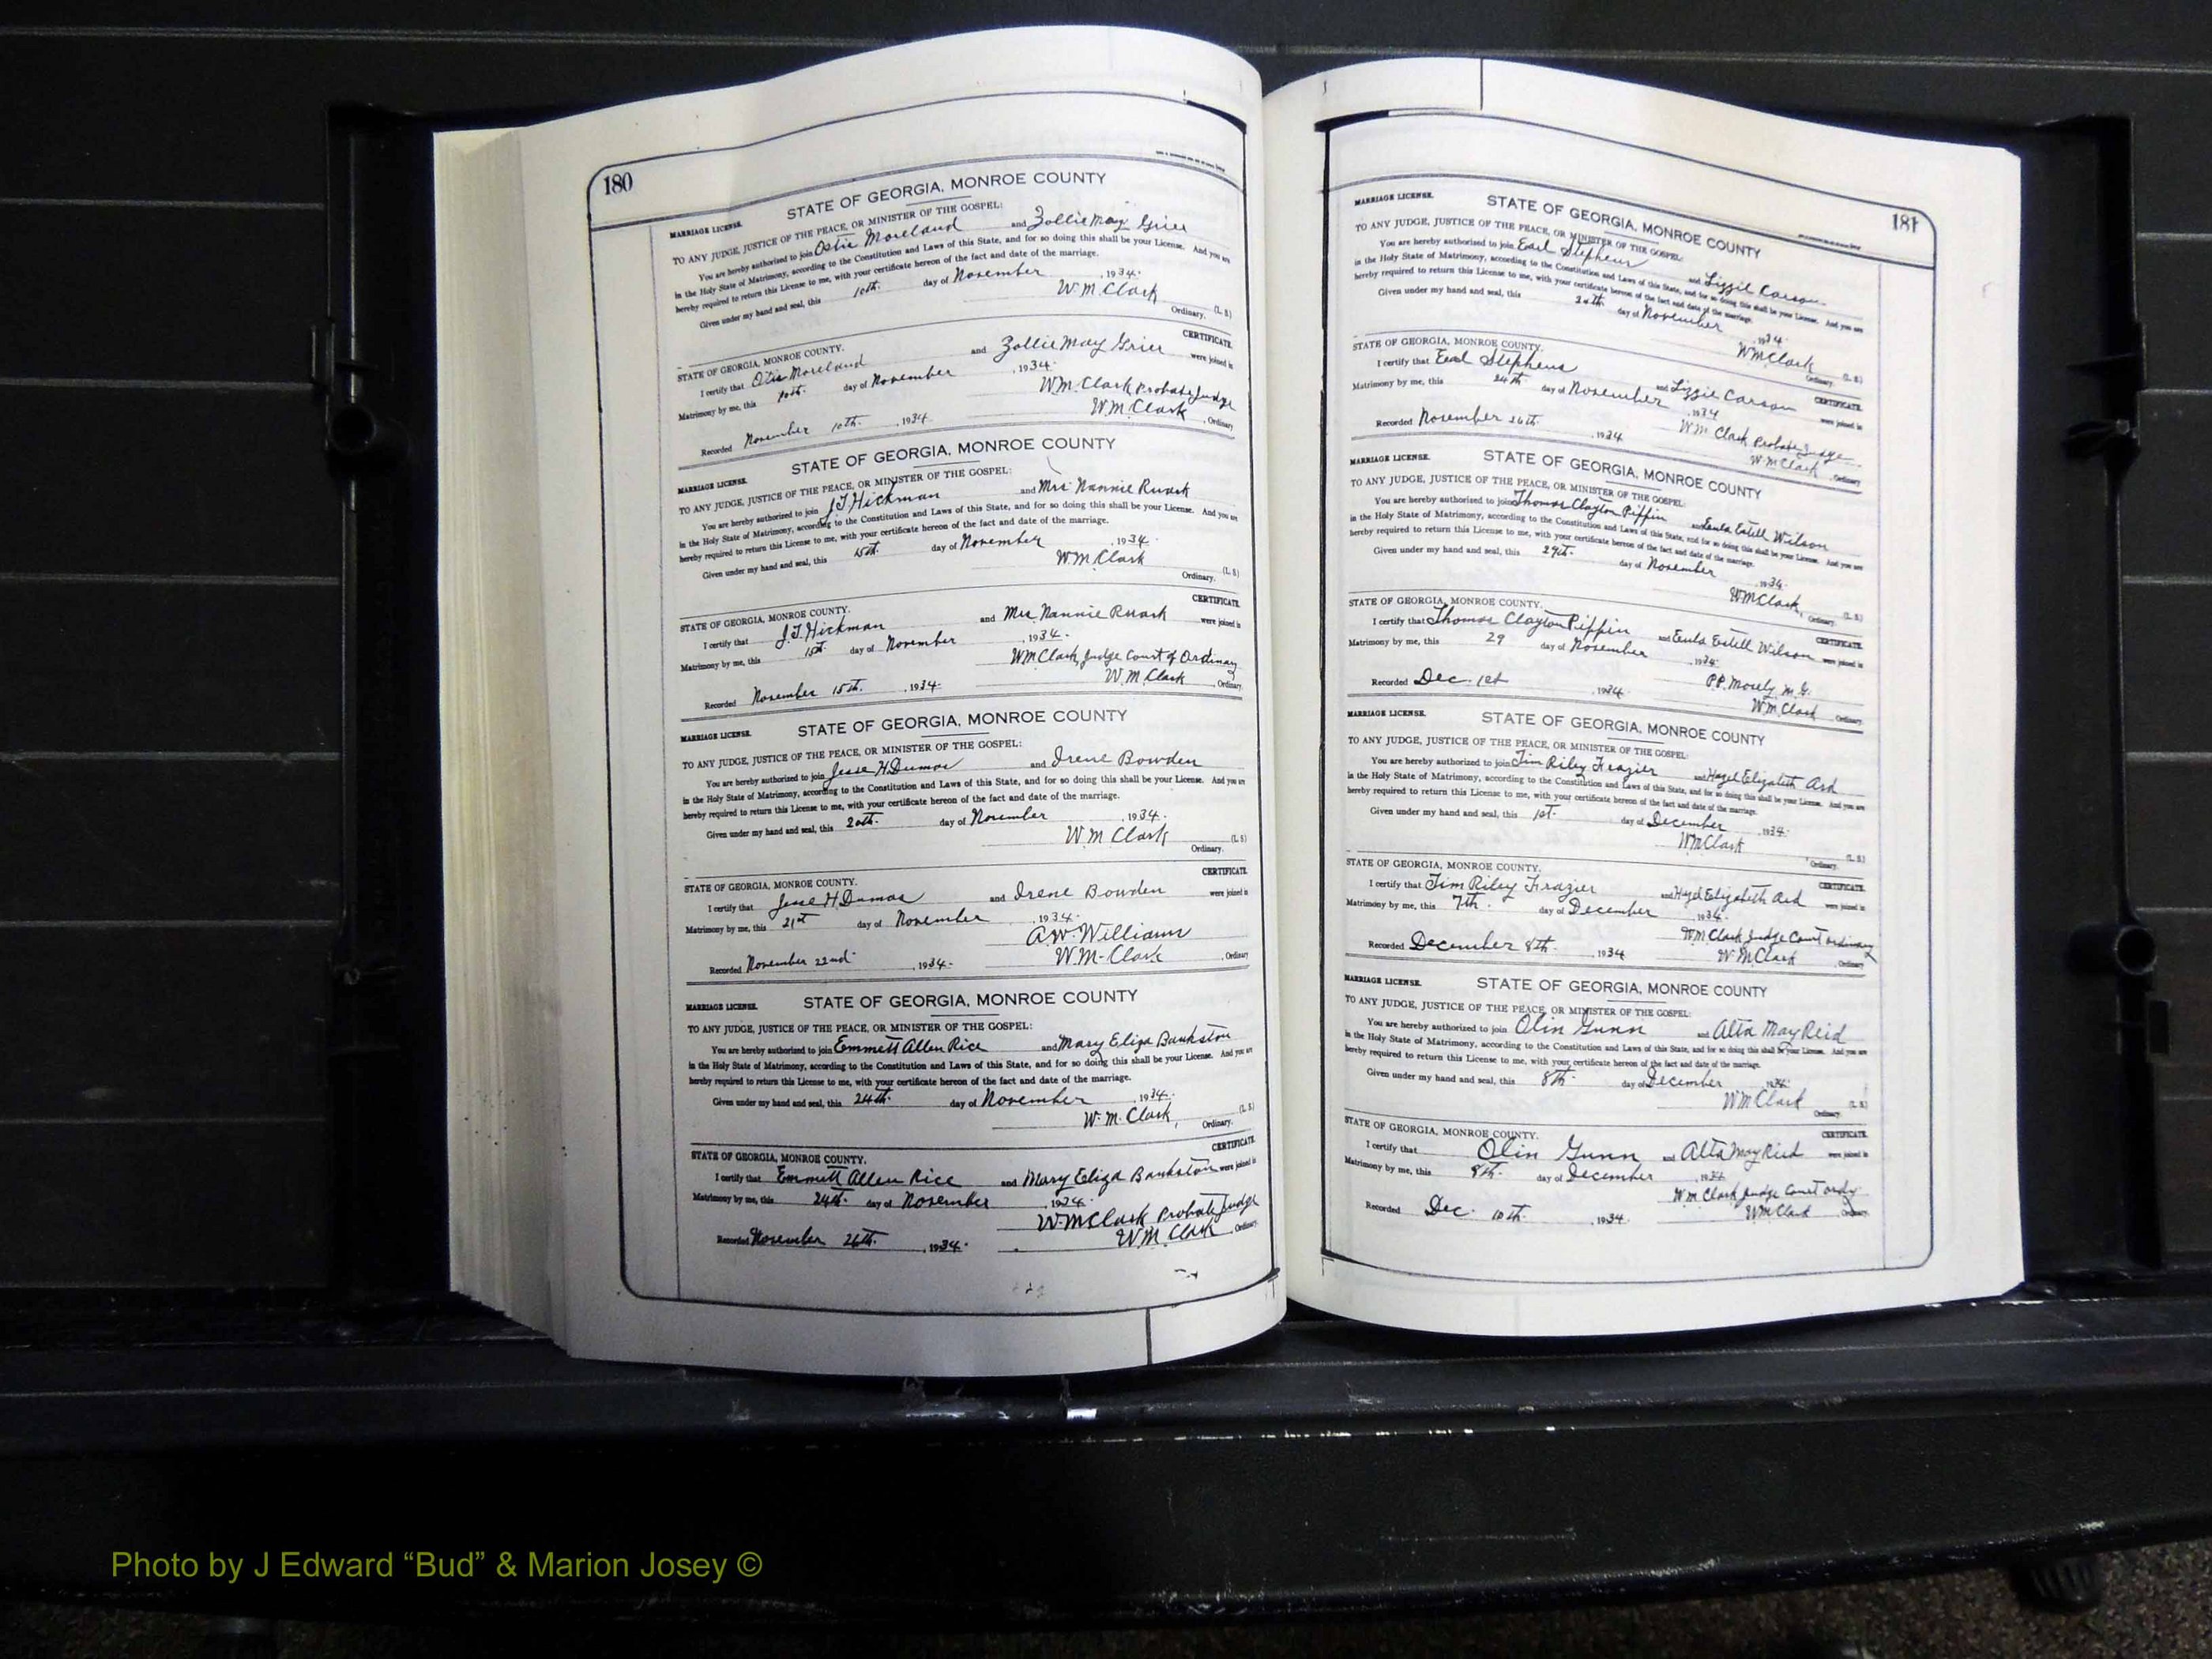 180
STATE OF GEORGIA, MONROE COUNTY
MARRIAGE LICENSE.
TO ANY JUDGE, JUSTICE OF THE PEACE, OR MINISTER OF THE GOSPEL:
You are hereby authorized to join Otis Moreland and Zollie May Grier
in the Holy State of Matrimony, according to the Constitution and Laws of this State, and for so doing this shall be your License. And you are
hereby required to return this License to me, with your certificate hereon of the fact and date of the marriage.
Given under my hand and seal, this 10th. day of November, 1934.
W.M. Clark
Ordinary. (L. S.)
STATE OF GEORGIA, MONROE COUNTY. CERTIFICATE.
I certify that Otis Moreland and Zollie May Grier were joined in
Matrimony by me, this 10th. day of November, 1934.
W.M. Clark Probate Judge
Recorded November 10th. , 1934. W.M. Clark, Ordinary
STATE OF GEORGIA, MONROE COUNTY
MARRIAGE LICENSE.
TO ANY JUDGE, JUSTICE OF THE PEACE, OR MINISTER OF THE GOSPEL:
You are hereby authorized to join J.T. Hickman and Mrs Nannie Ruark
in the Holy State of Matrimony, according to the Constitution and Laws of this State, and for so doing this shall be your License. And you are
hereby required to return this License to me, with your certificate hereon of the fact and date of the marriage.
Given under my hand and seal, this 15th. day of November, 1934.
W.M. Clark
Ordinary. (L. S.)
STATE OF GEORGIA, MONROE COUNTY. CERTIFICATE.
I certify that J.T. Hickman and Mrs. Nannie Ruark were joined in
Matrimony by me, this 15th. day of November, 1934.
WM Clark, Judge Court of Ordinary
Recorded November 15th. , 1934. W.M. Clark, Ordinary
STATE OF GEORGIA, MONROE COUNTY
MARRIAGE LICENSE.
TO ANY JUDGE, JUSTICE OF THE PEACE, OR MINISTER OF THE GOSPEL:
You are hereby authorized to join Jesse H. Dumas and Irene Bowden
in the Holy State of Matrimony, according to the Constitution and Laws of this State, and for so doing this shall be your License. And you are
hereby required to return this License to me, with your certificate hereon of the fact and date of the marriage.
Given under my hand and seal, this 20th. day of November, 1934.
W.M Clark
Ordinary. (L. S.)
STATE OF GEORGIA, MONROE COUNTY. CERTIFICATE.
I certify that Jesse H. Dumas and Irene Bowden were joined in
Matrimony by me, this 21st day of November, 1934.
A.W. Williams
Recorded November 22nd. , 1934. W.M. Clark, Ordinary
MARRIAGE LICENSE. STATE OF GEORGIA, MONROE COUNTY
TO ANY JUDGE, JUSTICE OF THE PEACE, OR MINISTER OF THE GOSPEL:
You are hereby authorized to join Emmett Allen Rice and Mary Eliza Bankston
in the Holy State of Matrimony, according to the Constitution and Laws of this State, and for so doing this shall be your License. And you are
hereby required to return this License to me, with your certificate hereon of the fact and date of the marriage.
Given under my hand and seal, this 24th. day of November, 1934.
W.M. Clark,
Ordinary. (L. S.)
STATE OF GEORGIA, MONROE COUNTY. CERTIFICATE.
I certify that Emmett Allen Rice and Mary Eliza Bankston were joined in
Matrimony by me, this 24th. day of November, 1934.
W.M Clark Probate Judge
Recorded November 26th. , 1934. W.M. Clark, Ordinary
181
MARRIAGE LICENSE. STATE OF GEORGIA, MONROE COUNTY
TO ANY JUDGE, JUSTICE OF THE PEACE, OR MINISTER OF THE GOSPEL:
You are hereby authorized to join Earl Stephens and Lizzie Carson
in the Holy State of Matrimony, according to the Constitution and Laws of this State, and for so doing this shall be your License. And you are
hereby required to return this License to me, with your certificate hereon of the fact and date of the marriage.
Given under my hand and seal, this 24th. day of November, 1934.
WM Clark
Ordinary. (L. S.)
STATE OF GEORGIA, MONROE COUNTY. CERTIFICATE.
I certify that Earl Stephens and Lizzie Carson were joined in
Matrimony by me, this 24th. day of November, 1934
WM Clark Probate Judge
Recorded November 26th. , 1934. W.M Clark, Ordinary
MARRIAGE LICENSE. STATE OF GEORGIA, MONROE COUNTY
TO ANY JUDGE, JUSTICE OF THE PEACE, OR MINISTER OF THE GOSPEL:
You are hereby authorized to join Thomas Clayton Piffin and Eula Estell Wilson
in the Holy State of Matrimony, according to the Constitution and Laws of this State, and for so doing this shall be your License. And you are
hereby required to return this License to me, with your certificate hereon of the fact and date of the marriage.
Given under my hand and seal, this 29th. day of November, 1934.
WM Clark,
Ordinary. (L. S.)
STATE OF GEORGIA, MONROE COUNTY. CERTIFICATE.
I certify that Thomas Clayton Piffin and Eula Estell Wilson were joined in
Matrimony by me, this 29 day of November, 1934.
P.P. Mosely M.G.
Recorded Dec. 1st , 1934. W.M. Clark, Ordinary
MARRIAGE LICENSE. STATE OF GEORGIA, MONROE COUNTY
TO ANY JUDGE, JUSTICE OF THE PEACE, OR MINISTER OF THE GOSPEL:
You are hereby authorized to join Jim Riley Frazier and Hazel Elizabeth Ard
in the Holy State of Matrimony, according to the Constitution and Laws of this State, and for so doing this shall be your License. And you are
hereby required to return this License to me, with your certificate hereon of the fact and date of the marriage.
Given under my hand and seal, this 1st. day of December, 1934.
WM Clark
Ordinary. (L. S.)
STATE OF GEORGIA, MONROE COUNTY. CERTIFICATE.
I certify that Jim Riley Frazier and Hazel Elizabeth Ard were joined in
Matrimony by me, this 7th. day of December, 1934.
WM Clark Judge Court ordinary
Recorded December 8th. , 1934 W.M Clark, Ordinary
MARRIAGE LICENSE. STATE OF GEORGIA, MONROE COUNTY
TO ANY JUDGE, JUSTICE OF THE PEACE, OR MINISTER OF THE GOSPEL:
You are hereby authorized to join Olin Gunn and Alta May Reid
in the Holy State of Matrimony, according to the Constitution and Laws of this State, and for so doing this shall be your License. And you are
hereby required to return this License to me, with your certificate hereon of the fact and date of the marriage.
Given under my hand and seal, this 8th. day of December, 1934.
WM Clark
Ordinary. (L. S.)
STATE OF GEORGIA, MONROE COUNTY. CERTIFICATE.
I certify that Olin Gunn and Alta May Reid were joined in
Matrimony by me, this 8th. day of December, 1934
W.M Clark Judge Court ordy
Recorded Dec. 10th. , 1934. WM Clark, Ordinary
Photo by J Edward “Bud” & Marion Josey ©